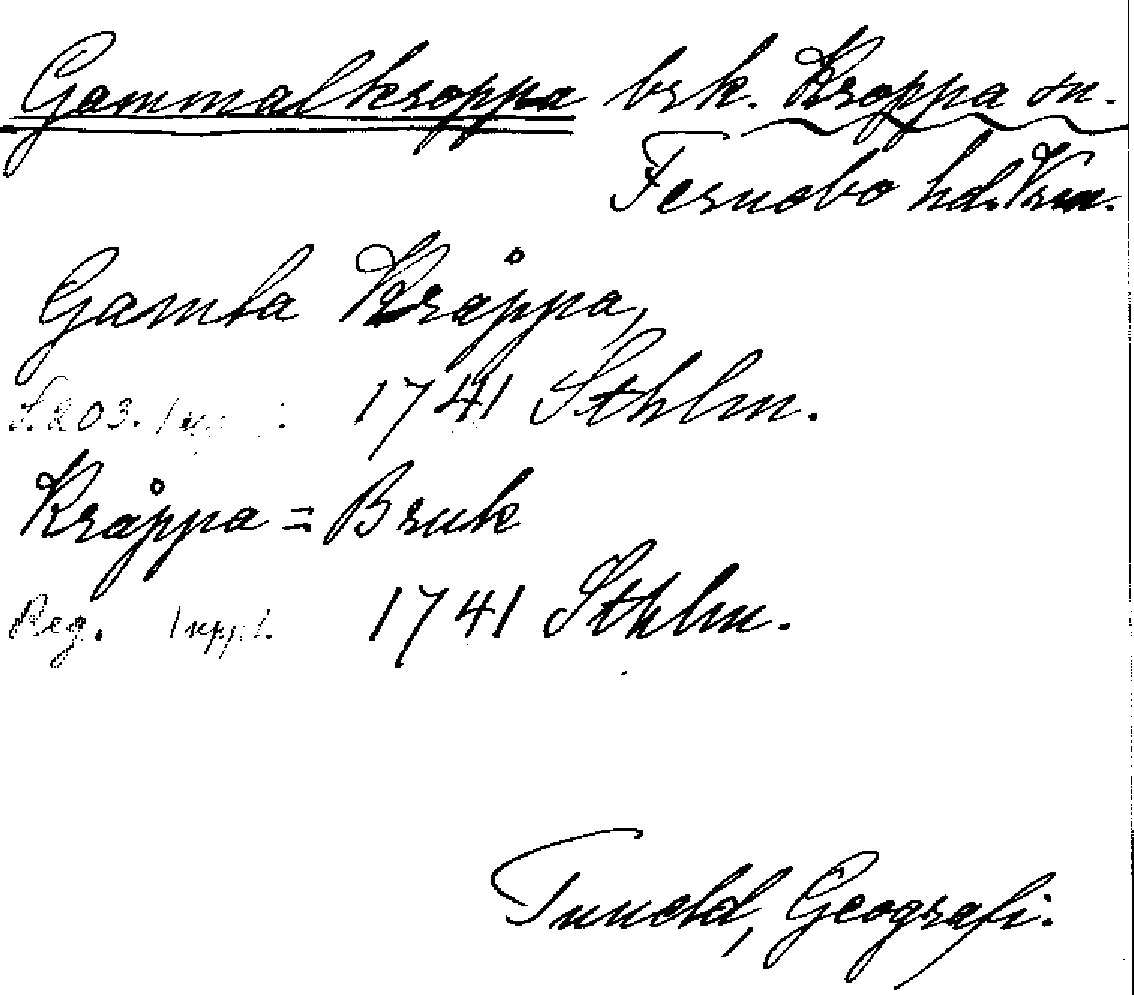 Gammalkroppa brk. Kroppa sn.
Fernebo hd. Vrm.
Gamla Kråppa,
S. 203. 1741 Sthlm.
Kråppa = Bruk
Reg. 1 uppl. 1741 Sthlm.
Tuneld, Geografi.